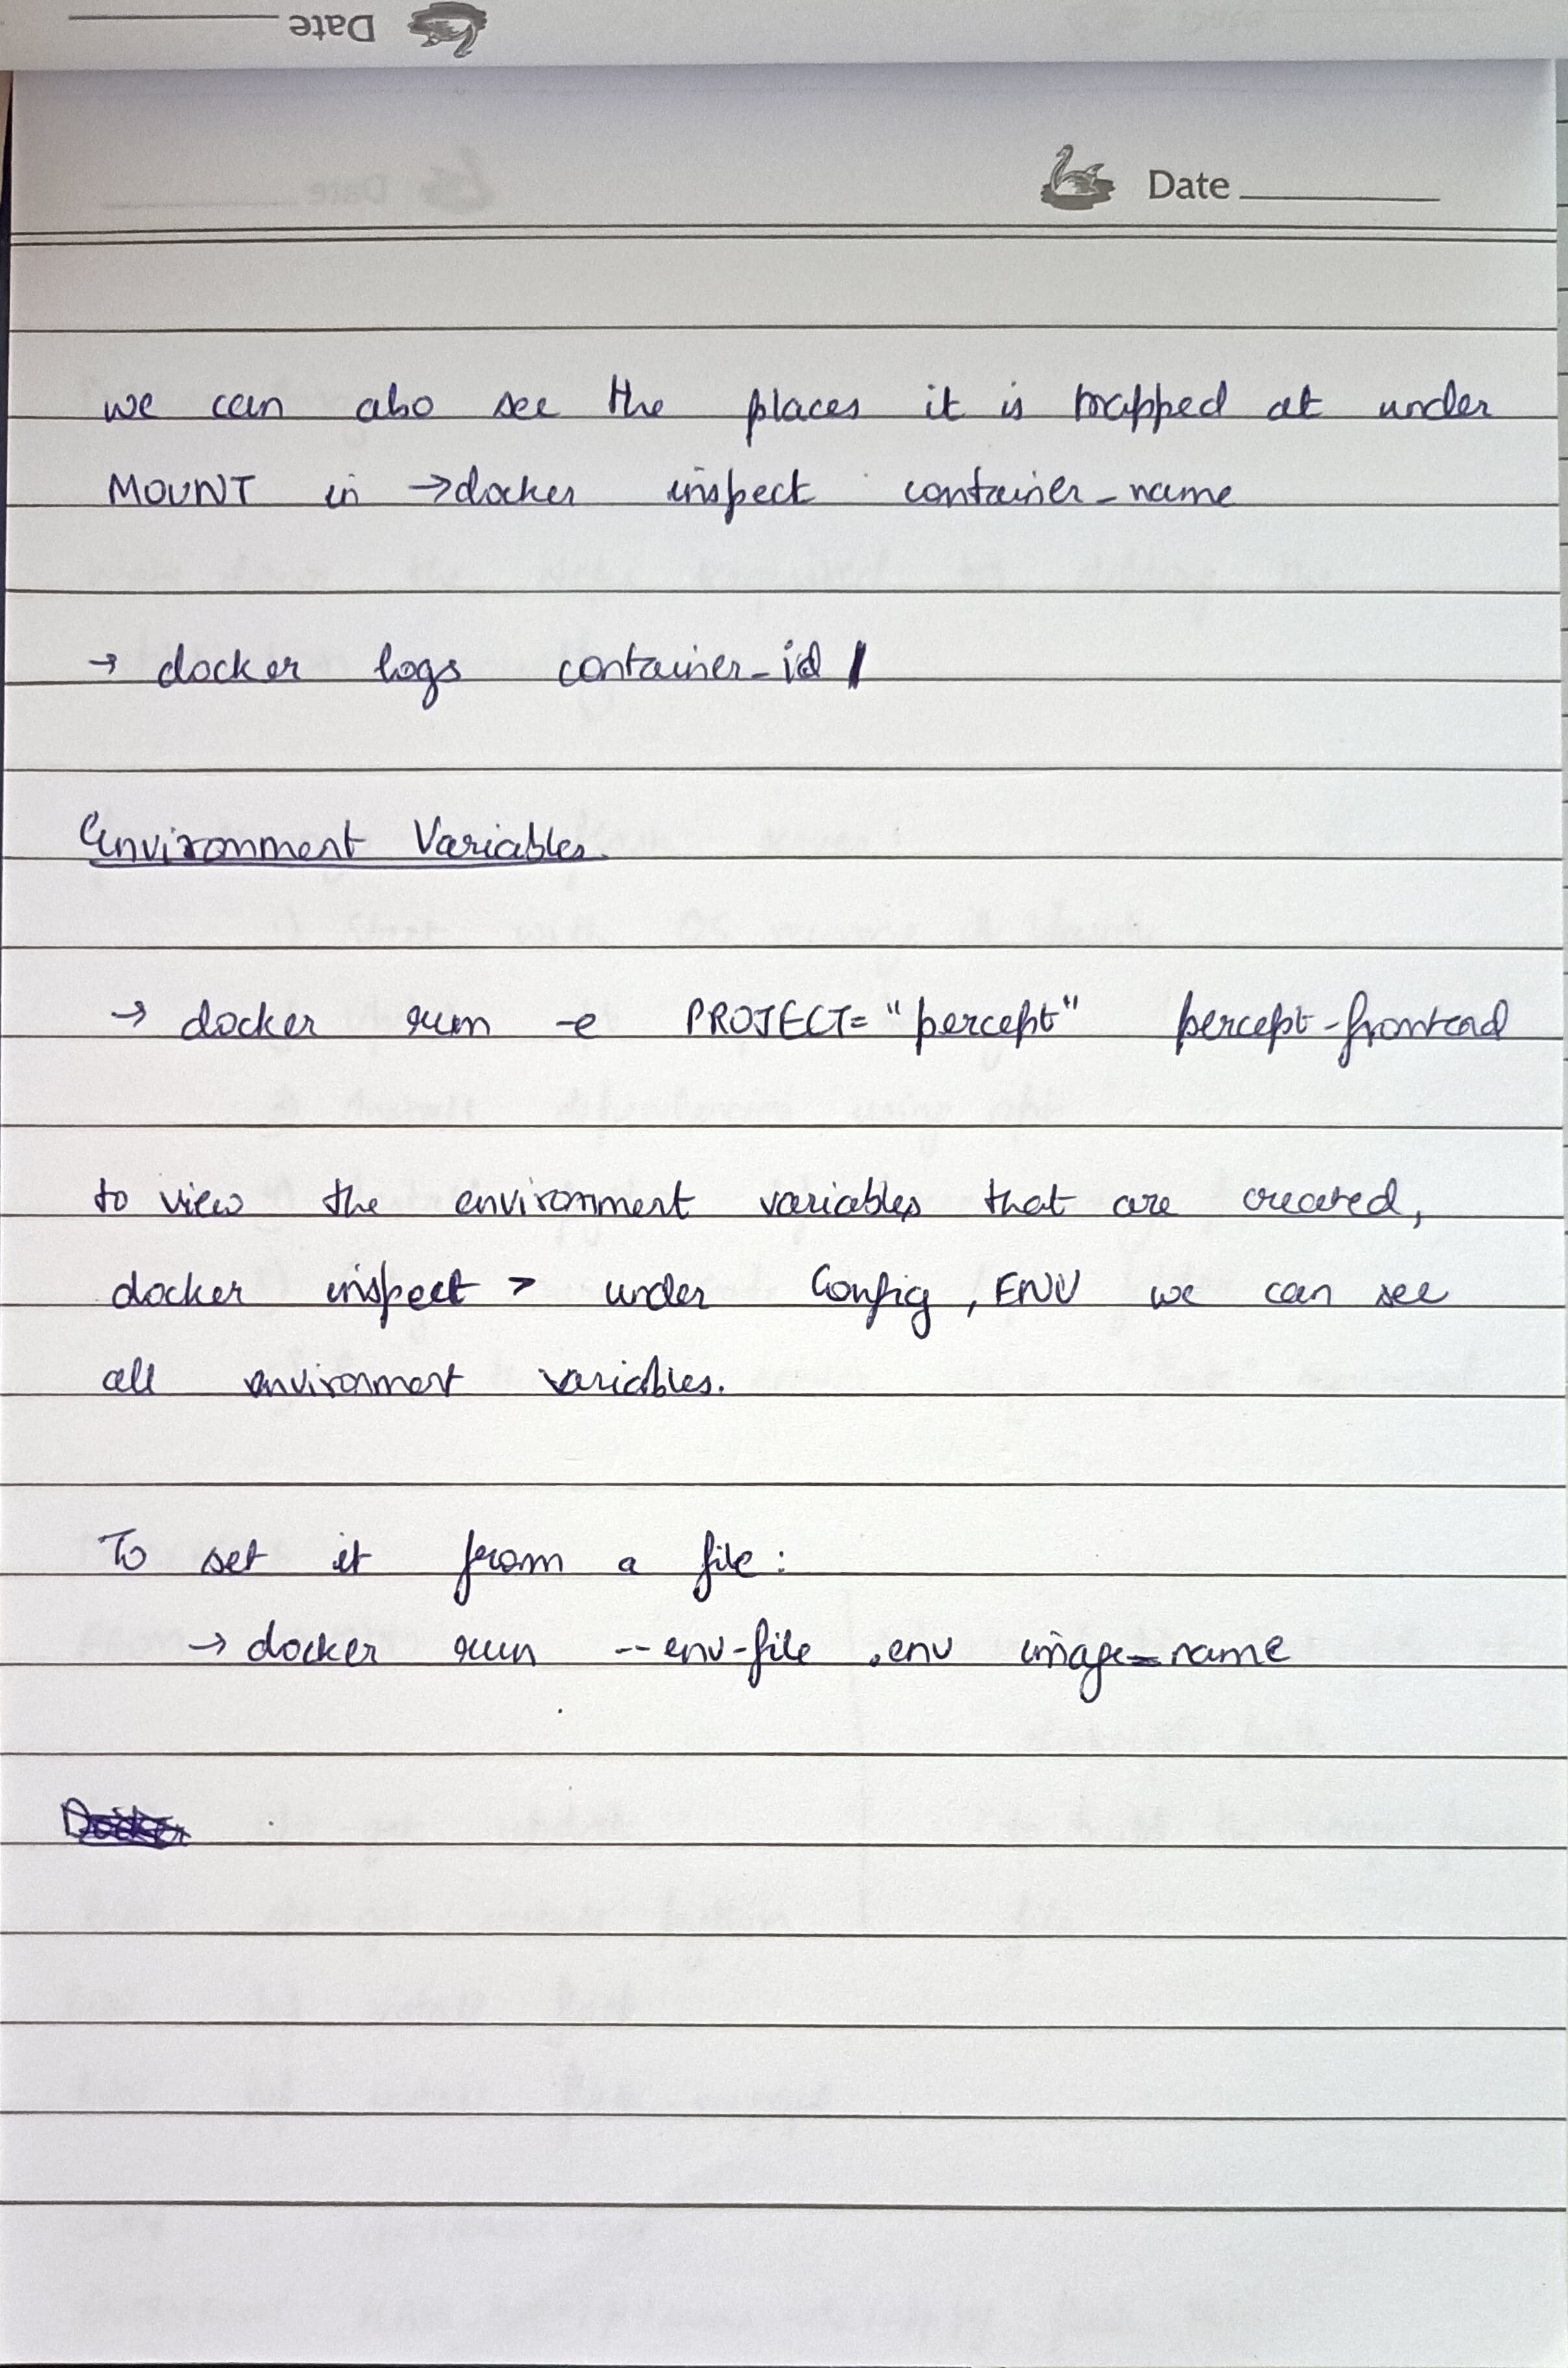 Date
Date
we can also see the places it is mapped at under
MOUNT in →docker inspect container_name
→ docker logs container_id
Environment Variables
→ docker run -e PROJECT="percept" percept-frontend
to view the environment variables that are created,
docker inspect > under Config, ENV we can see
all environment variables.
To set it from a file:
→ docker run --env-file .env image_name